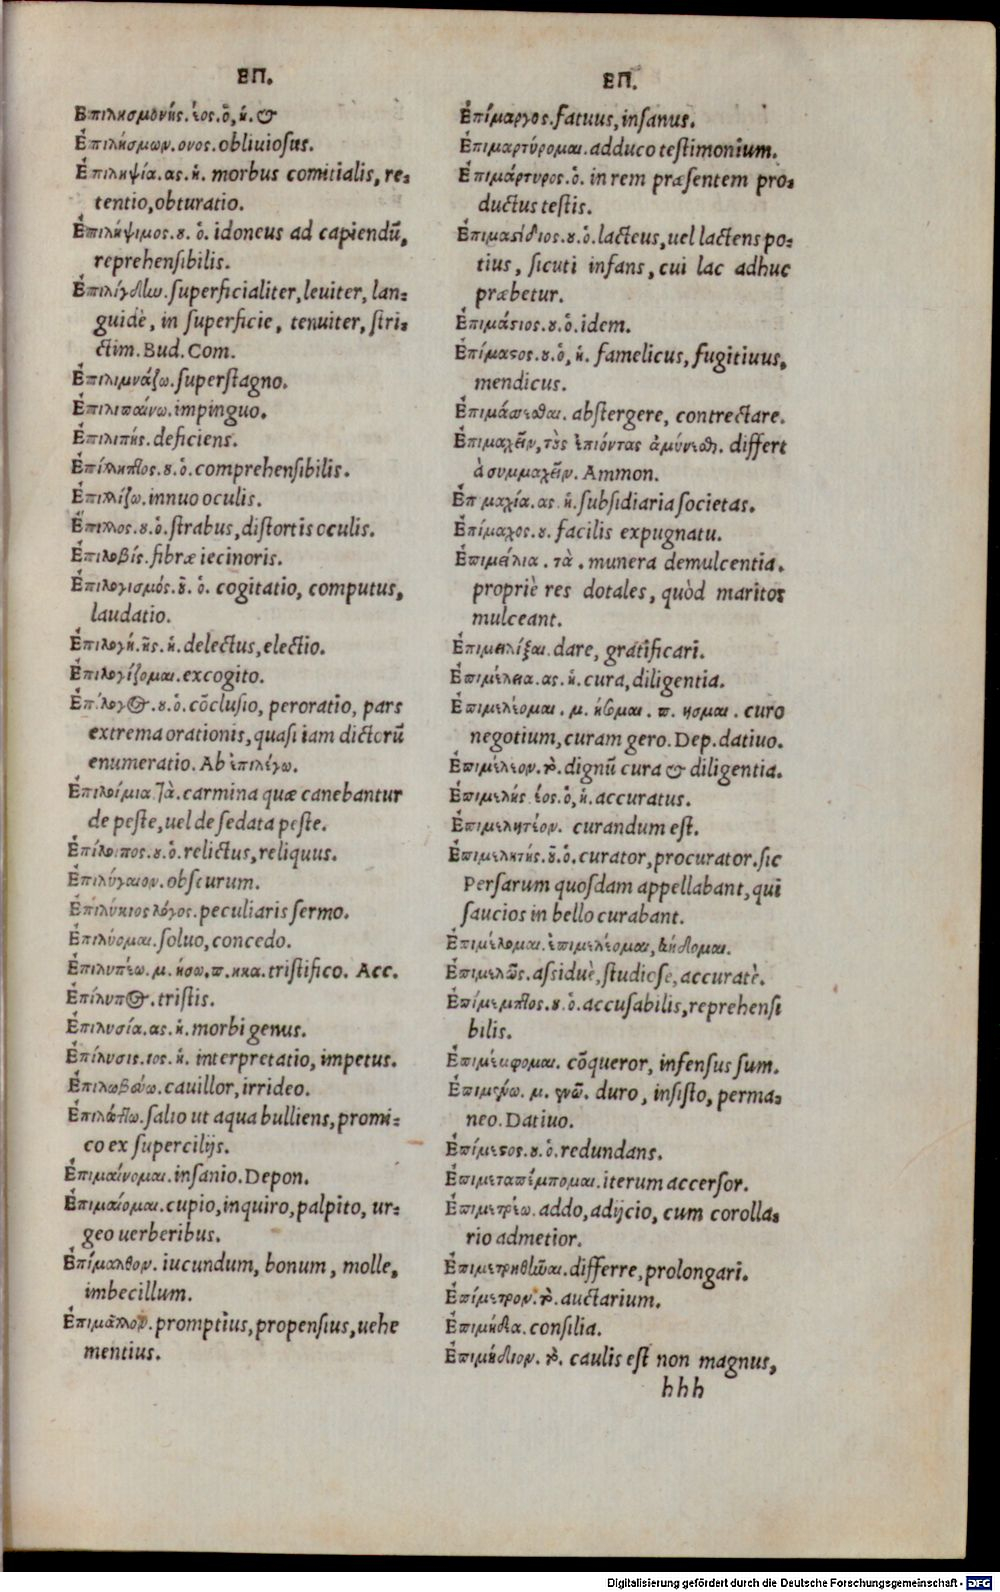 ΕΠ.
Επιλησμονὴς. έος. ὁ, ἡ. &
Ἐπιλήσμων. ονος. obliuiosus.
Ἐπιληψία. ας. ἡ. morbus comitialis, re-
tentio, obturatio.
Ἐπιλήψιμος. ου. ὁ. idoneus ad capiendũ,
reprehensibilis.
Ἐπιλίγδην. superficialiter, leuiter, lan-
guidè, in superficie, tenuiter, stri-
ctim. Bud. Com.
Ἐπιλιμνάζω. superstagno.
Ἐπιλιπαίνω. impinguo.
Ἐπιλιπής. deficiens.
Ἐπίληπτος. ου. ὁ. comprehensibilis.
Ἐπιλλίζω. innuo oculis.
Ἔπιλλος. ου. ὁ. strabus, distortis oculis.
Ἐπιλοβίς. fibræ iecinoris.
Ἐπιλογισμός. οῦ. ὁ. cogitatio, computus,
laudatio.
Ἐπιλογή. ῆς. ἡ. delectus, electio.
Ἐπιλογίζομαι. excogito.
Ἐπίλογος. ου. ὁ. cõclusio, peroratio, pars
extrema orationis, quasi iam dictorũ
enumeratio. Ab ἐπιλέγω.
Ἐπιλοίμια. τὰ. carmina quæ canebantur
de peste, uel de sedata peste.
Ἐπίλοιπος. ου. ὁ. relictus, reliquus.
Ἐπιλύγαιον. obscurum.
Ἐπιλύκιος λόγος. peculiaris sermo.
Ἐπιλύομαι. soluo, concedo.
Ἐπιλυπέω. μ. ήσω. π. ηκα. tristifico. Acc.
Ἐπίλυπος. tristis.
Ἐπιλυσία. ας. ἡ. morbi genus.
Ἐπίλυσις. ιος. ἡ. interpretatio, impetus.
Ἐπιλωβάω. cauillor, irrideo.
Ἐπιλάπτω. salio ut aqua bulliens, promi-
co ex supercilijs.
Ἐπιμαίνομαι. insanio. Depon.
Ἐπιμαίομαι. cupio, inquiro, palpito, ur-
geo uerberibus.
Ἐπίμαλθον. iucundum, bonum, molle,
imbecillum.
Ἐπιμᾶλλον. promptius, propensius, uehe
mentius.
ΕΠ.
Ἐπίμαργος. fatuus, insanus.
Ἐπιμαρτύρομαι. adduco testimonium.
Ἐπιμάρτυρος. ὁ. in rem præsentem pro-
ductus testis.
Ἐπιμαστίδιος. ου. ὁ. lacteus, uel lactens po-
tius, sicuti infans, cui lac adhuc
præbetur.
Ἐπιμάστιος. ου. ὁ. idem.
Ἐπίμαστος. ου. ὁ, ἡ. famelicus, fugitiuus,
mendicus.
Ἐπιμάσσεσθαι. abstergere, contrectare.
Ἐπιμαχεῖν, τοὺς ἐπιόντας ἀμύνεσθαι. differt
à συμμαχεῖν. Ammon.
Ἐπιμαχία. ας. ἡ. subsidiaria societas.
Ἐπίμαχος. ου. facilis expugnatu.
Ἐπιμείλια. τὰ. munera demulcentia.
propriè res dotales, quòd maritos
mulceant.
Ἐπιμειλίξαι. dare, gratificari.
Ἐπιμέλεια. ας. ἡ. cura, diligentia.
Ἐπιμελέομαι. μ. ήσομαι. π. ησμαι. curo
negotium, curam gero. Dep. datiuo.
Ἐπιμέλεον. τὸ. dignũ cura & diligentia.
Ἐπιμελής. έος. ὁ, ἡ. accuratus.
Ἐπιμελητέον. curandum est.
Ἐπιμελητής. οῦ. ὁ. curator, procurator. sic
Persarum quosdam appellabant, qui
saucios in bello curabant.
Ἐπιμέλομαι. ἐπιμελέομαι, κήδομαι.
Ἐπιμελῶς. assiduè, studiose, accuratè.
Ἐπίμεμπτος. ου. ὁ. accusabilis, reprehensi
bilis.
Ἐπιμέμφομαι. cõqueror, infensus sum.
Ἐπιμένω. μ. ενῶ. duro, insisto, perma-
neo. Datiuo.
Ἐπίμεστος. ου. ὁ. redundans.
Ἐπιμεταπέμπομαι. iterum accersor.
Ἐπιμετρέω. addo, adijcio, cum corolla-
rio admetior.
Ἐπιμετρηθῆναι. differre, prolongari.
Ἐπίμετρον. τὸ. auctarium.
Ἐπιμήδεα. consilia.
Ἐπιμήδιον. τὸ. caulis est non magnus,
hhh
Digitalisierung gefördert durch die Deutsche Forschungsgemeinschaft - DFG